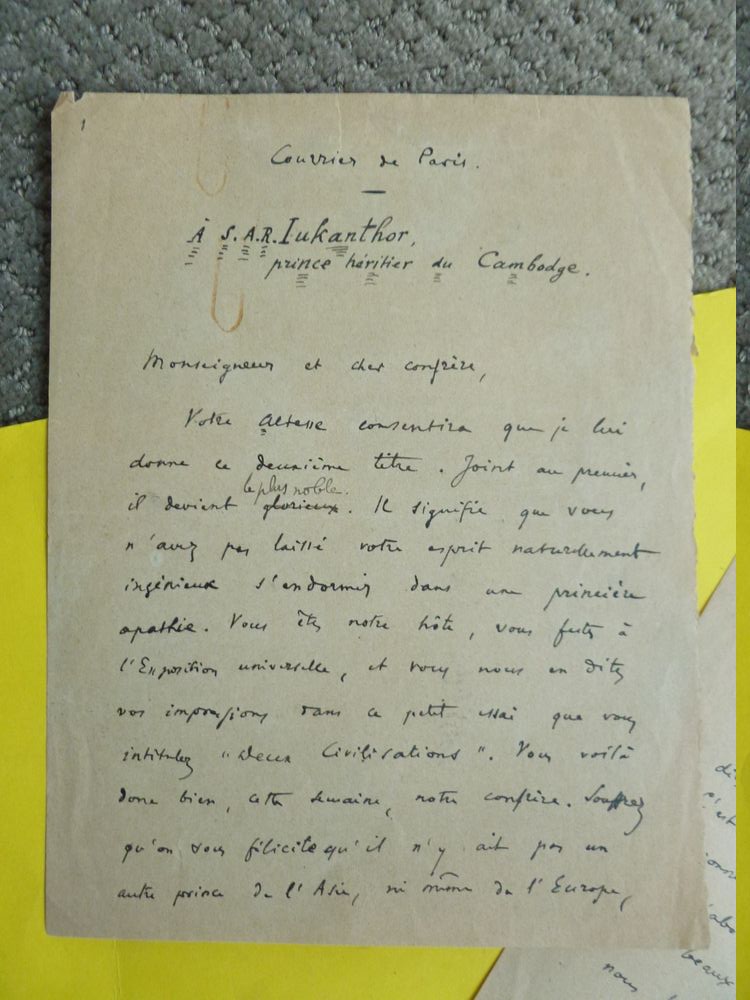 1
Courrier de Paris.
À S.A.R. Iukanthor,
prince héritier du Cambodge.
Monseigneur et cher confrère,
Votre Altesse consentira que je lui
donne ce deuxième titre. Joint au premier,
le plus noble.
il devient glorieux. Il signifie que vous
n'avez pas laissé votre esprit naturellement
ingénieux s'endormir dans une princière
apathie. Vous êtes notre hôte, vous fûtes à
l'Exposition universelle, et vous nous en dites
vos impressions dans ce petit essai que vous
intitulez "Deux Civilisations". Vous voilà
donc bien, cette semaine, notre confrère. Souffrez
qu'on vous félicite qu'il n'y ait pas un
autre prince de l'Asie, ni même de l'Europe,
c'est
beaux
nous